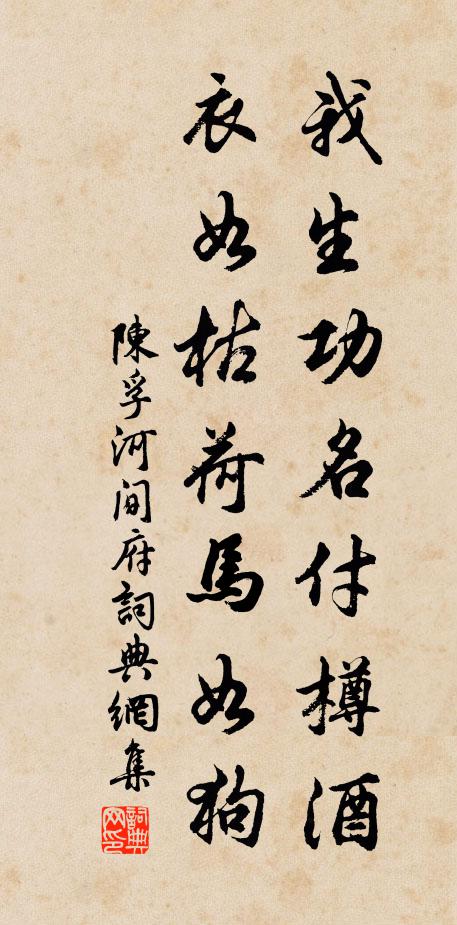 我生功名付樽酒
衣如枯荷馬如狗
陳孚河間府詞典網集
詞典网印